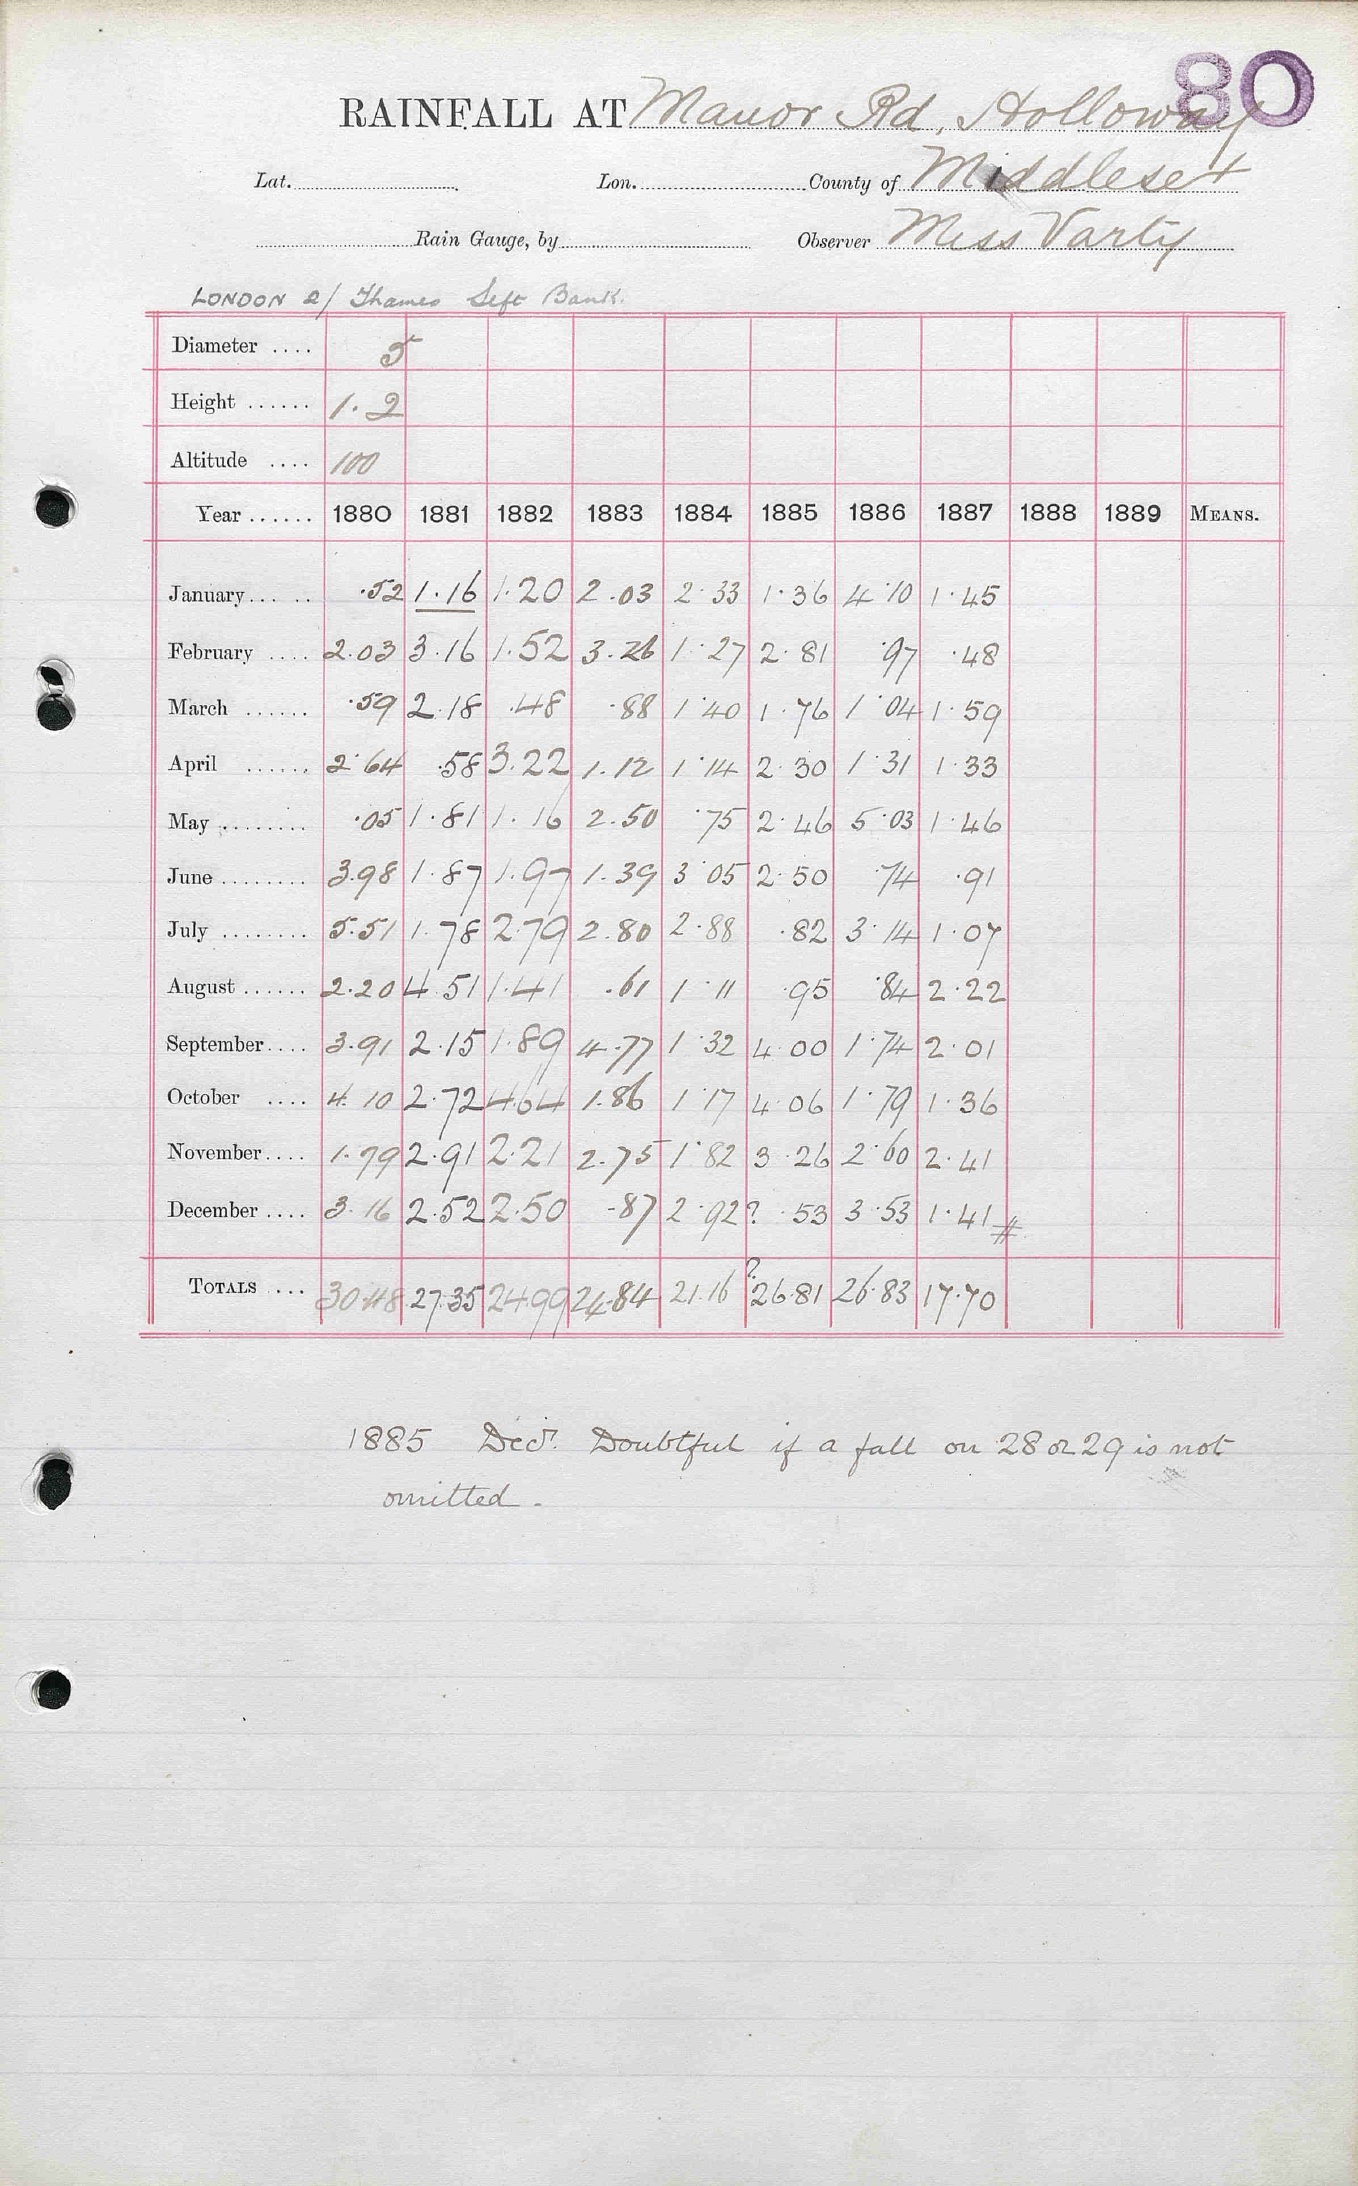 80
RAINFALL AT Manor Rd, Holloway
Lat. Lon. County of Middlesex
Rain Gauge, by Observer Miss Varty
LONDON 2/ Thames Left Bank.
Diameter .... 5
Height ...... 1.2
Altitude .... 100
Year ...... 1880 1881 1882 1883 1884 1885 1886 1887 1888 1889 MEANS.
January ..... .52 1.16 1.20 2.03 2.33 1.36 4.10 1.45
February .... 2.03 3.16 1.52 3.26 1.27 2.81 .97 .48
March ...... .59 2.18 .48 .88 1.40 1.76 1.04 1.59
April ...... 2.64 .58 3.22 1.12 1.14 2.30 1.31 1.33
May ........ .05 1.81 1.16 2.50 .75 2.46 5.03 1.46
June ........ 3.98 1.87 1.97 1.39 3.05 2.50 .74 .91
July ........ 5.51 1.78 2.79 2.80 2.88 .82 3.14 1.07
August ...... 2.20 4.51 1.41 .61 1.11 .95 .84 2.22
September .... 3.91 2.15 1.89 4.77 1.32 4.00 1.74 2.01
October .... 4.10 2.72 4.64 1.86 1.17 4.06 1.79 1.36
November .... 1.79 2.91 2.21 2.75 1.82 3.26 2.60 2.41
December .... 3.16 2.52 2.50 .87 2.92 ? .53 3.53 1.41 #
TOTALS ... 30.48 27.35 24.99 24.84 21.16 ? 26.81 26.83 17.70
1885 Decr. Doubtful if a fall on 28 or 29 is not
omitted.